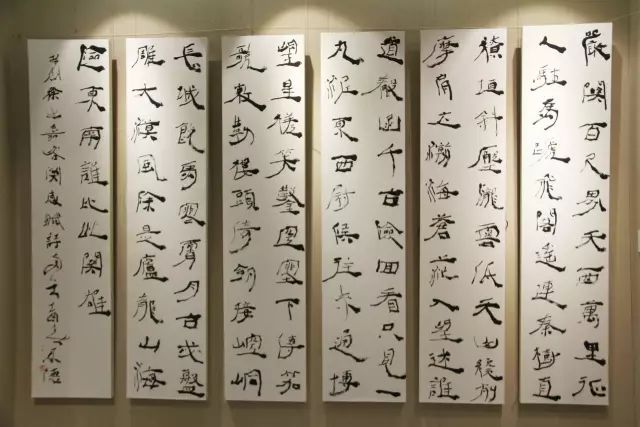 嚴関百尺界天西萬里征
人駐馬蹄飛閣遙連秦樹直
繚垣斜壓隴雲低天山巉削
摩肩立瀚海蒼茫入望迷誰
道殽函千古險回看只見一
丸泥東西尉候往来通博
望星槎笑鑿空塞下傳笳
歌敕勒樓頭倚劍接崆峒
長城飲馬寒宵月古戍盤
雕大漠風除是盧龍山海
險東南誰比此關雄
林則徐出嘉峪関感賦詩